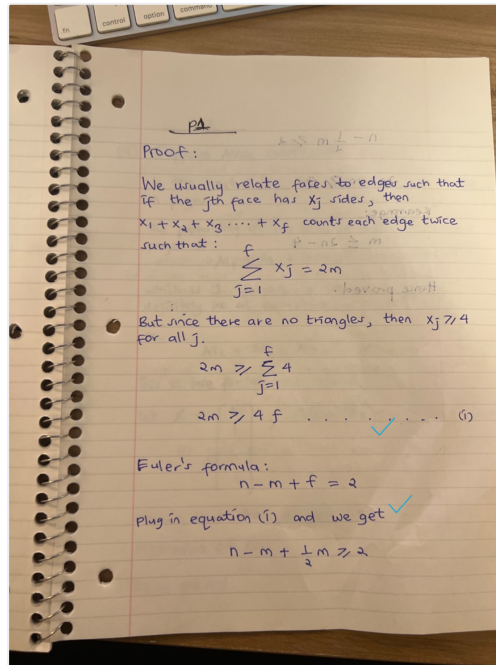 fn
control
option
command
P1
Proof:
We usually relate faces to edges such that
if the jth face has xj sides, then
x1 + x2 + x3 ..... + xf counts each edge twice
such that:
f
∑ xj = 2m
j=1
But since there are no triangles, then xj ⩾ 4
for all j.
f
2m ⩾ ∑ 4
j=1
2m ⩾ 4f . . . . . . . . . (i)
Euler's formula:
n - m + f = 2
plug in equation (i) and we get
n - m + 1/2 m ⩾ 2
n - 1/2 m ⩾ 2
m ⩽ 2n - 4
Hence proved.